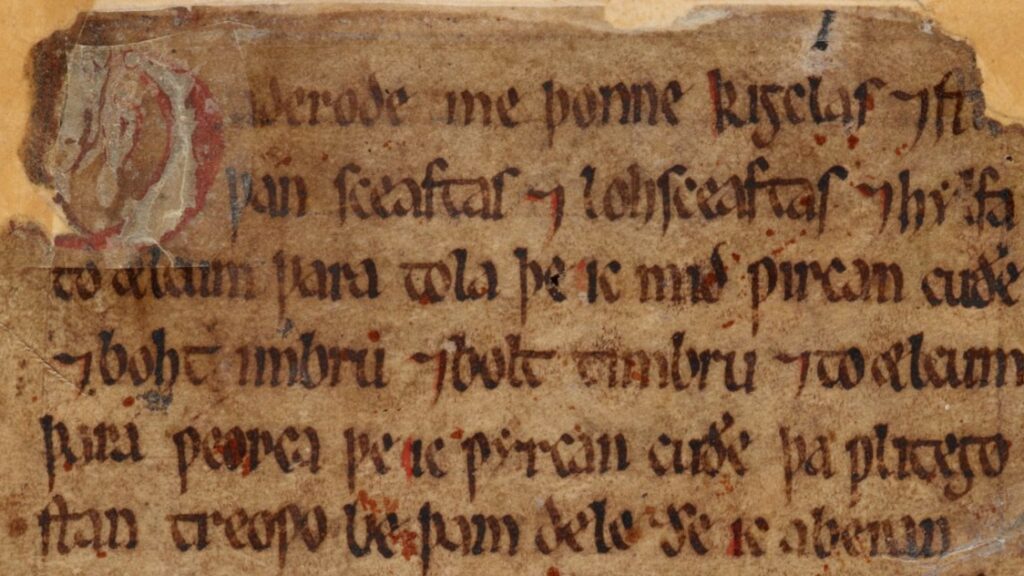 Gaderode me þonne kigclas ⁊ stu
þan sceaftas ⁊ lohsceaftas ⁊ hylfa
to ælcum þara tola þe ic mid ƿircan cuðe
⁊ boht imbru ⁊ bolt timbru ⁊ to ælcum
þara ƿeorca þe ic ƿyrcan cuðe þa ƿlitego
stan treoƿo be þam dele ðe ic aberan